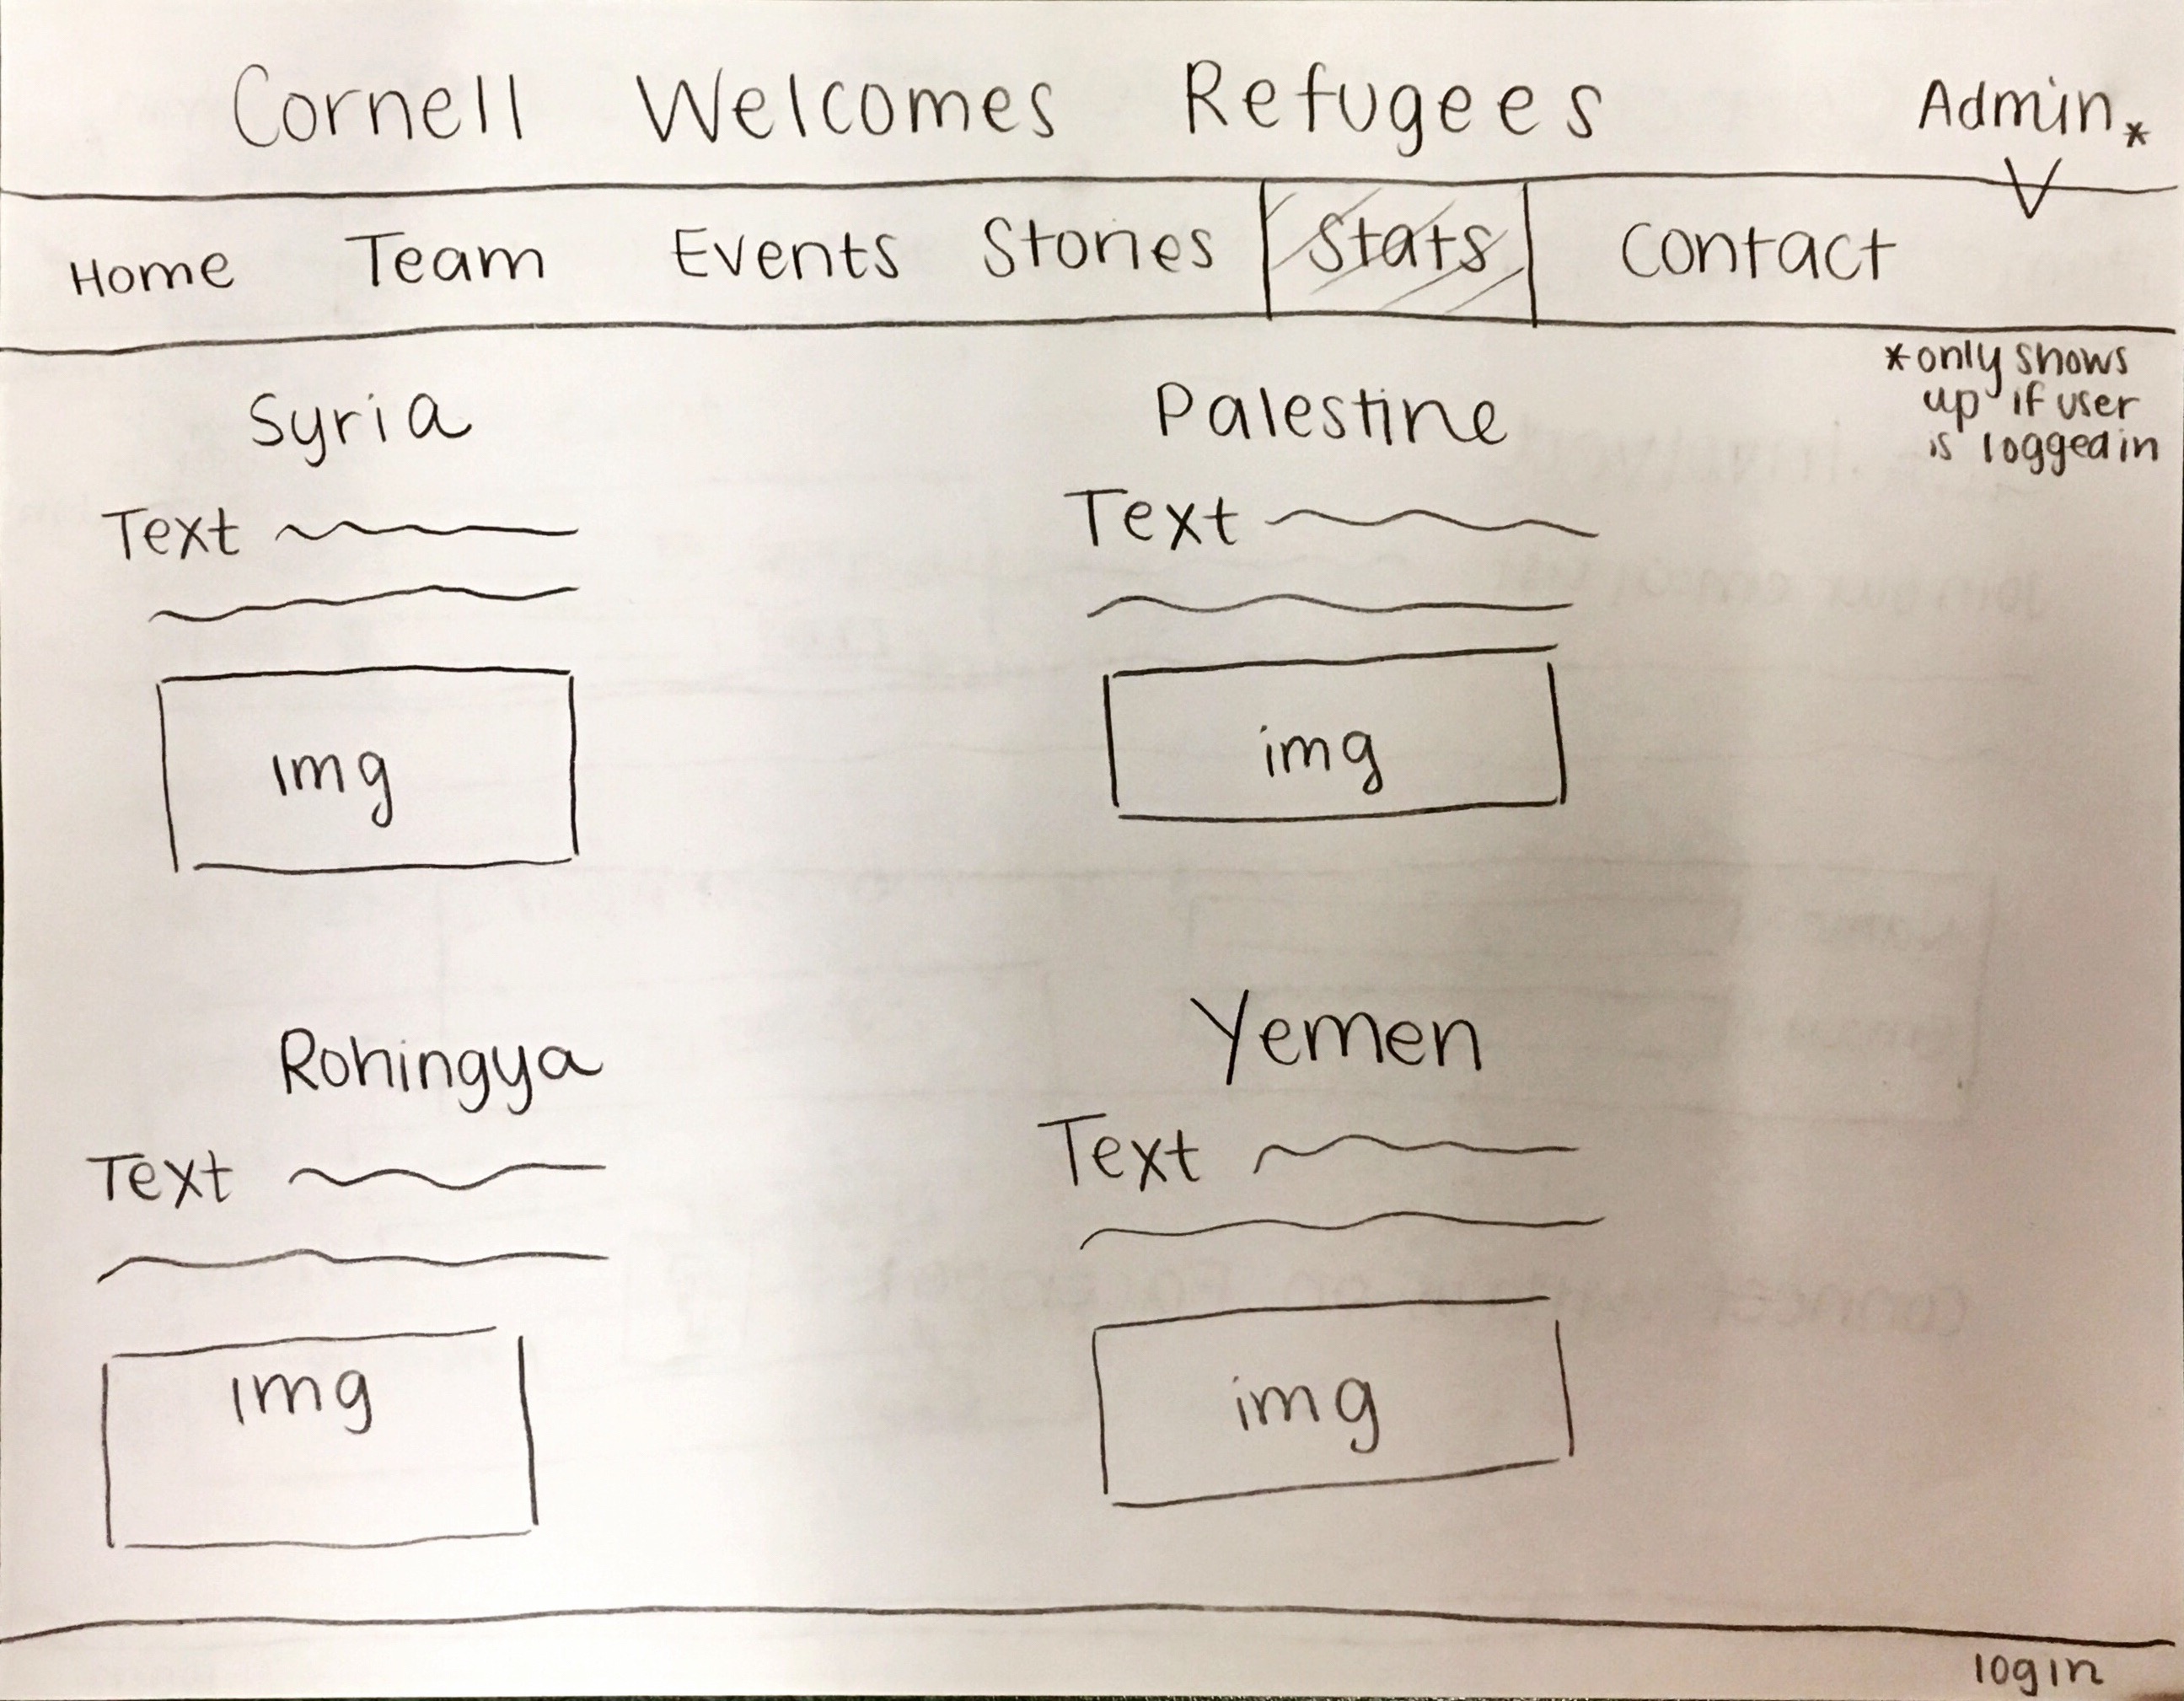 Cornell Welcomes Refugees Admin*
Home Team Events Stories Stats Contact
*only shows
up if user
is logged in
Syria Palestine
Text Text
img img
Rohingya Yemen
Text Text
img img
login